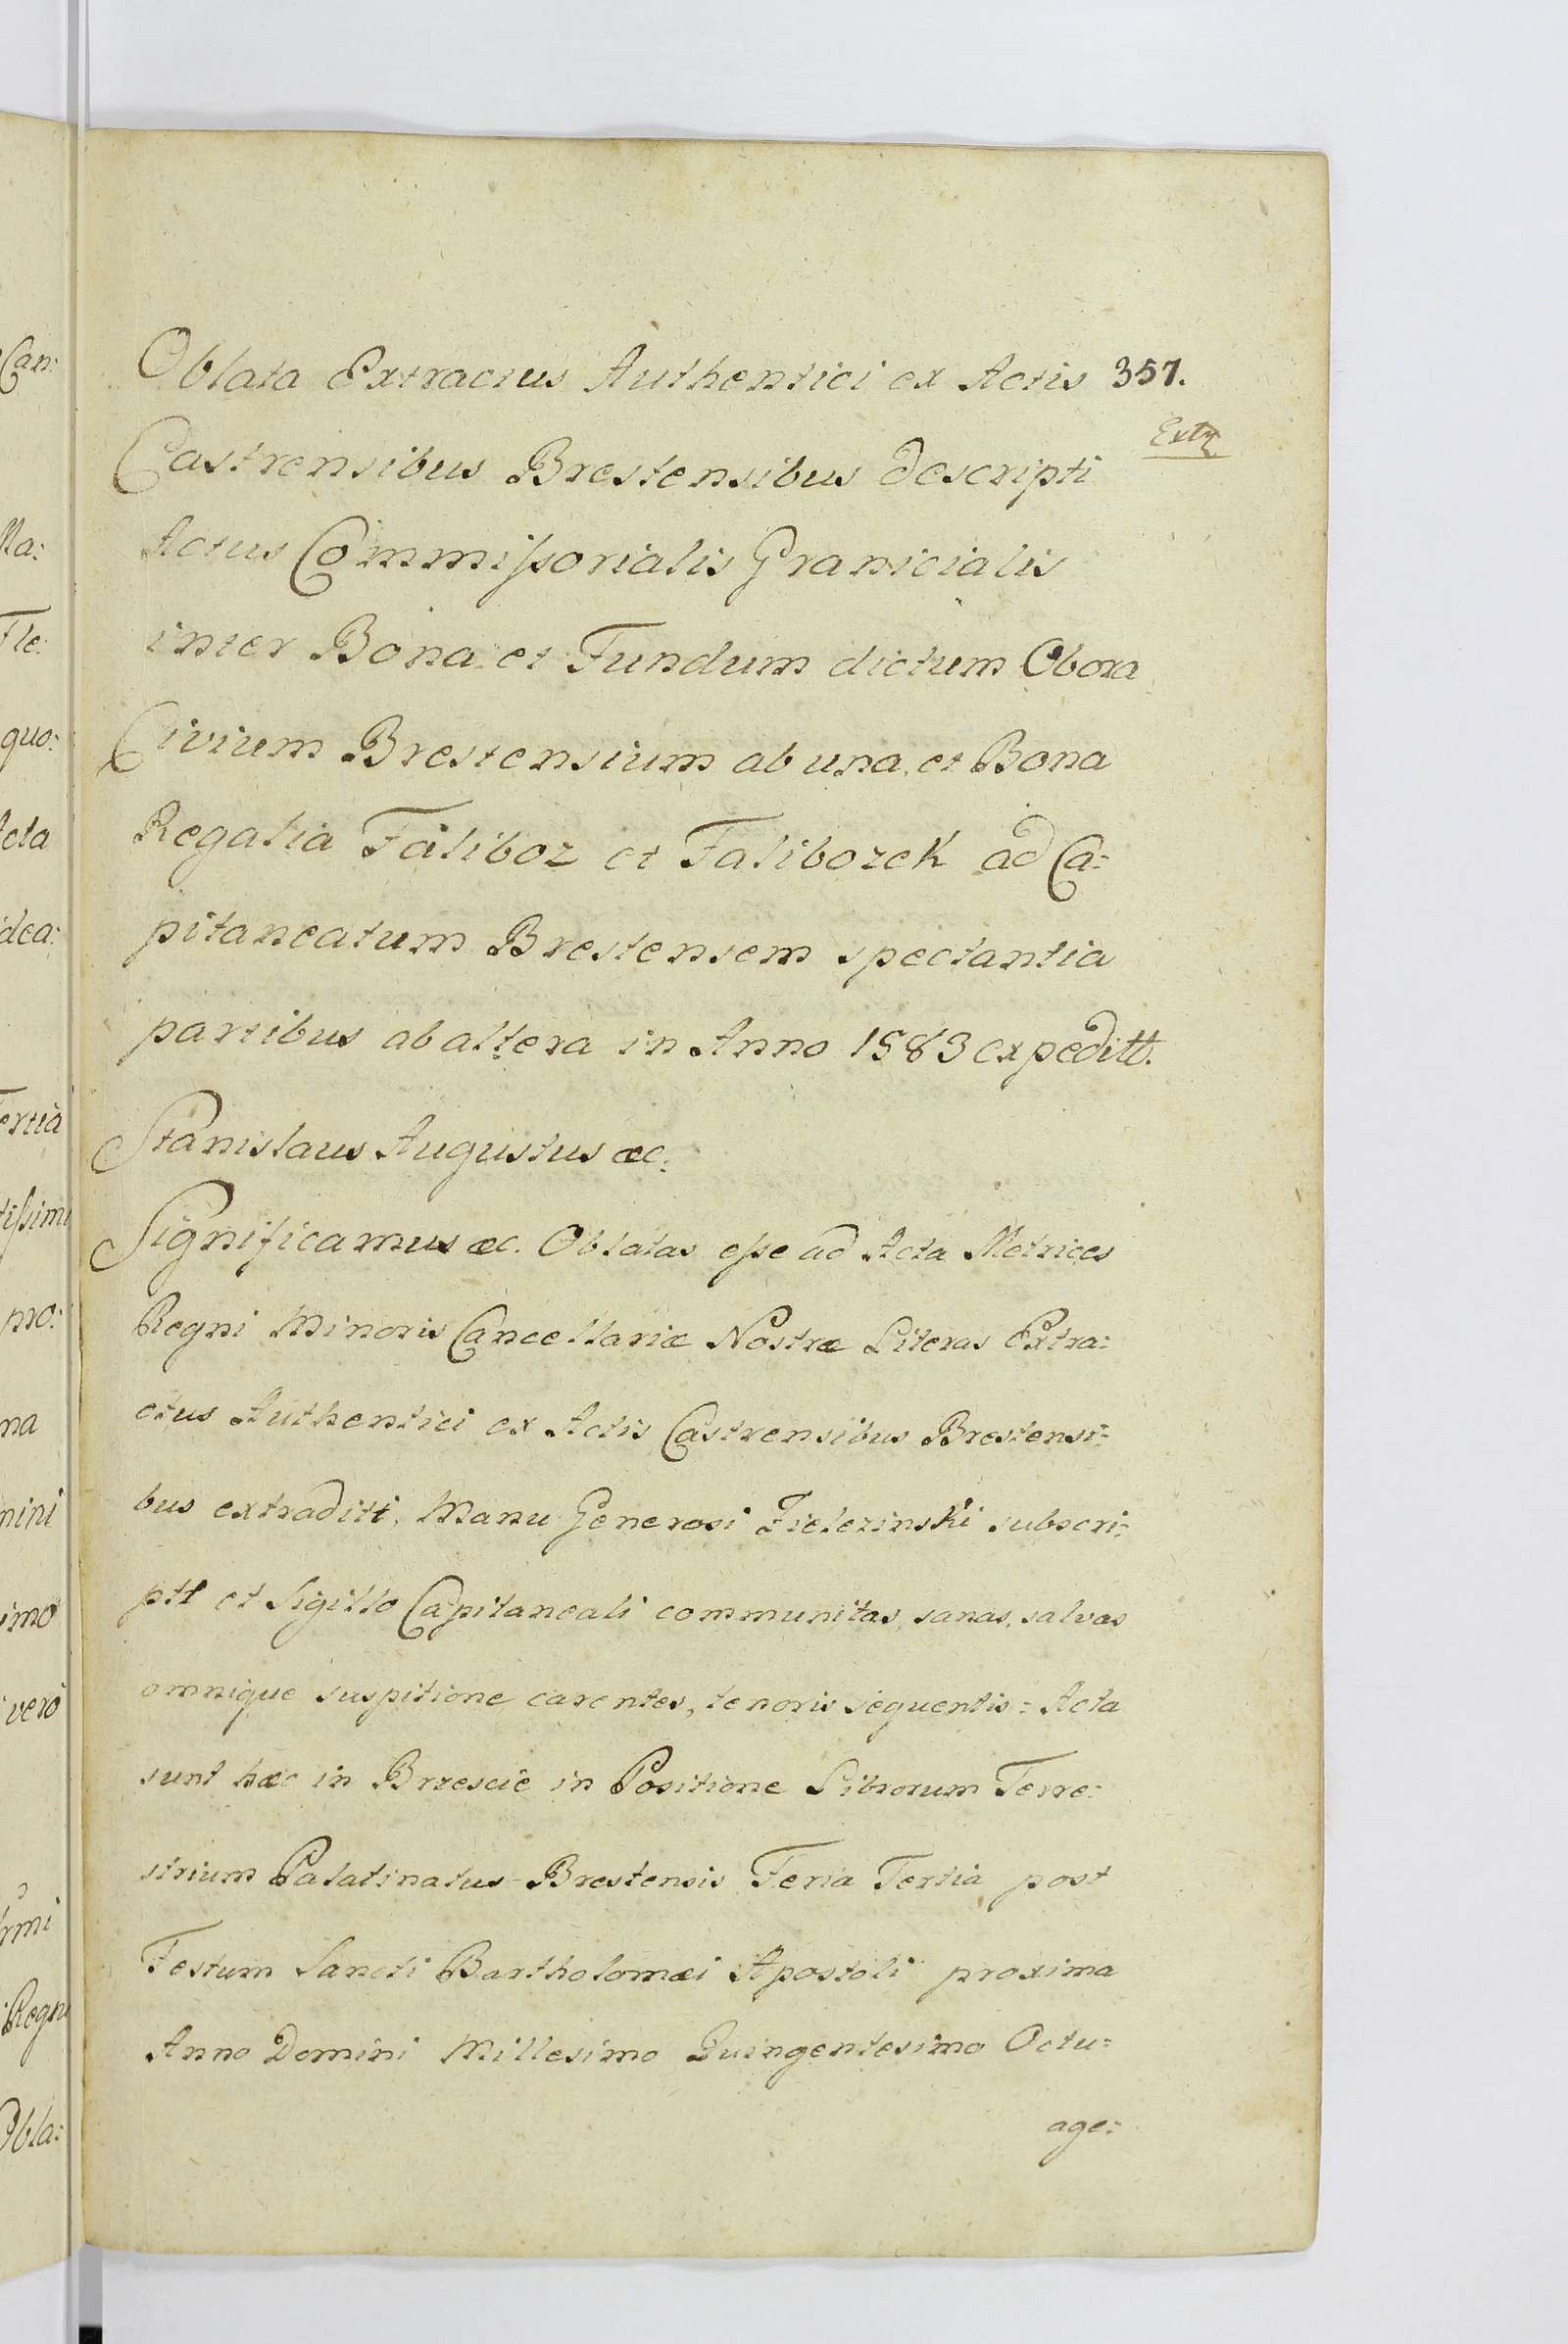 Oblata Extractus Authentici ex Actis 357.
Extr
Castrensibus Brestensibus descripti
Actus Commissorialis Granicialis
inter Bona et Fundum dictum Obora
Civium Brestensium ab una, et Bona
Regalia Faliboz et Falibozek ad Ca=
pitaneatum Brestensem spectantia
partibus ab altera in Anno 1583 expeditt.
Stanislaus Augustus &c.
Significamus &c. Oblatas esse ad Acta Metrices
Regni Minoris Cancellariæ Nostræ Literas Extra=
ctus Authentici ex Actis Castrensibus Brestensi=
bus extraditi, Manu Generosi Fielezinski subscri=
ptt et Sigillo Capitaneali communitas, sanas, salvas
omnique suspitione carentes, tenoris sequentis = Acta
sunt hæc in Brzescie in Positione Librorum Terre=
strium Palatinatus Brestensis Feria Tertia post
Festum Sancti Bartholomæi Apostoli proxima
Anno Domini Millesimo Quingentesimo Octu=
age=
Can:
Ma:
Fle:
quo:
Acta
dea:
Tertia
tissimi
mo:
na
mini
imo
vero
Regni
Obla: